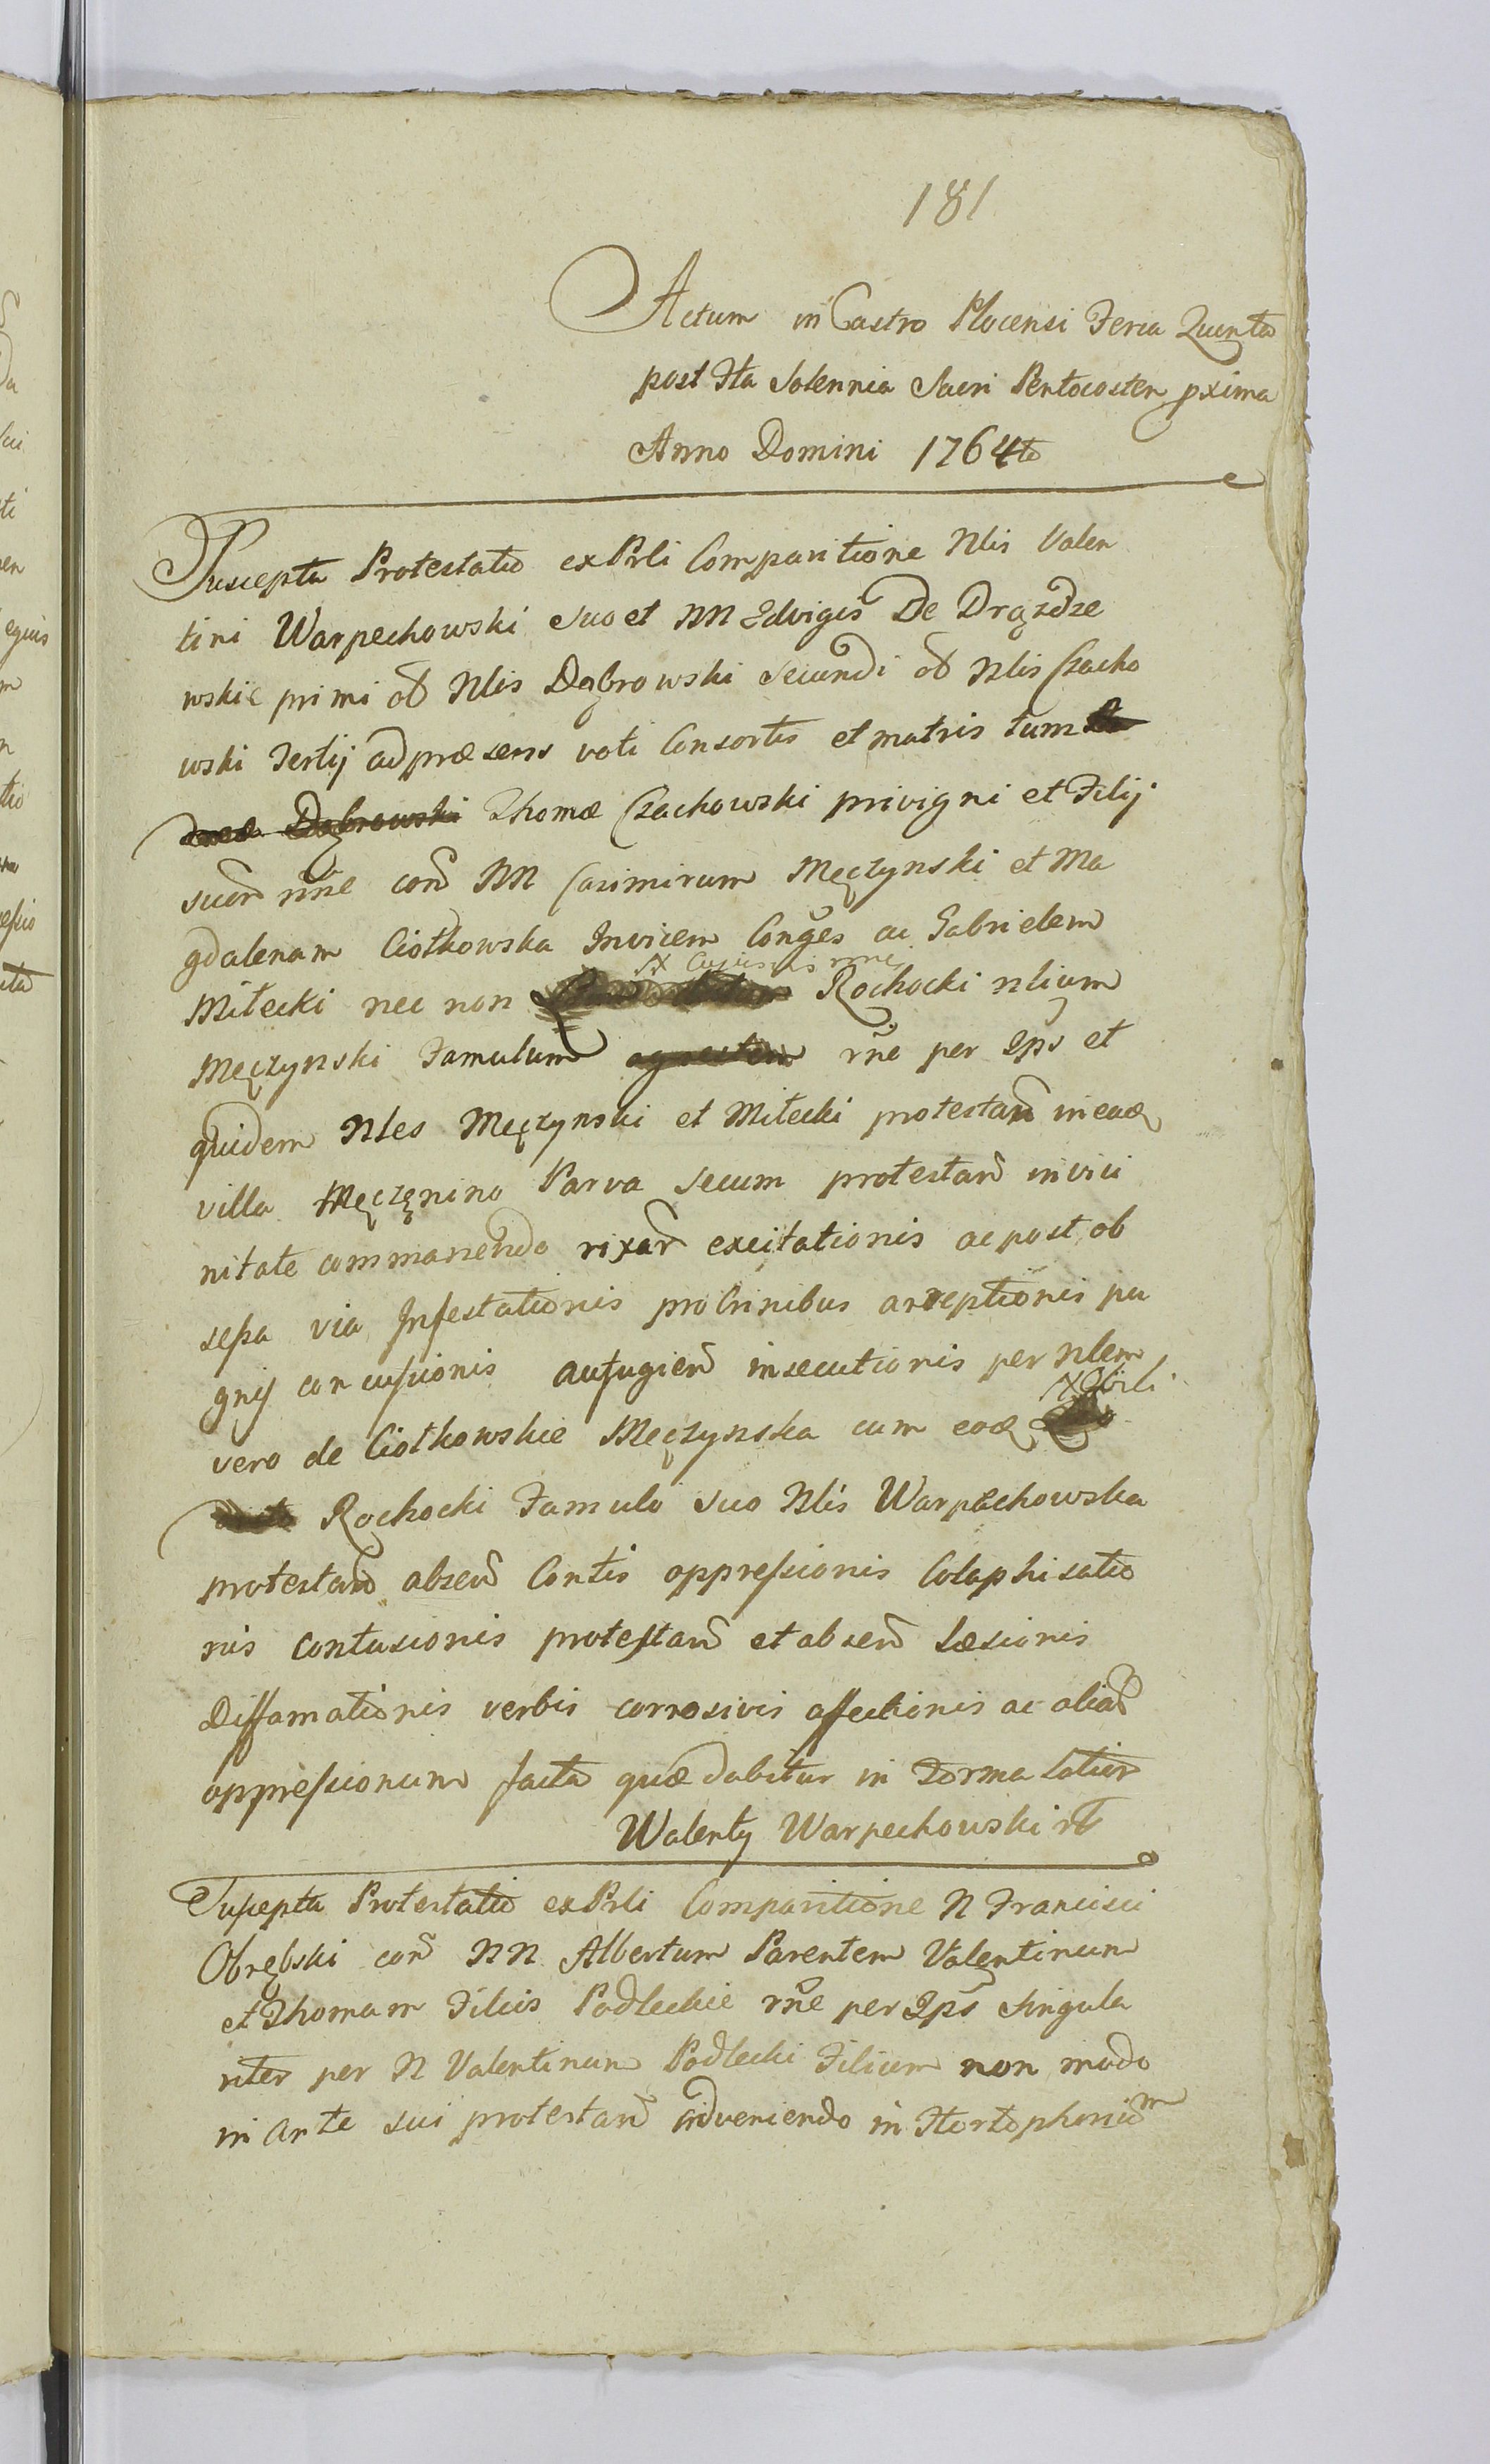 181
Actum in Castro Plocensi Feria Quinta
post Fta Solennia Sacri Pentecosten pxima
Anno Domini 1764to
Suscepta Protestatio ex Prli Comparitione Nlis Valen
tini Warpechowski suo et NN Edvigis De Drązdze
wskie primi ob Nlis Dąbrowski secundi ob Nlis Czacho
wski Tertij ad præsens voti Consortis et matris tum
Dąbrowski Thomæ Czachowski privigni et Filij
suor nne con NN Casimirum Męczynski et Ma
gdalenam Ciołkowska Invicem Conges ac Gabrielem
Miłecki nec non Rochocki nlium
Męczynski Famulum agrestem rne per Ips et
quidem Nles Męczynski et Miłecki protestan in ead
villa Męczęnino Parva secum protestan in vici
nitate commanendo rixar excitationis ac post ob
sessa via Infestationis pro Crinibus arreptionis pu
gnij concussionis aufugien insecutionis per Nlem
vero de Ciołkowskie Męczynska cum eod Nobili
Rochocki Famulo suo Nlis Warpechowska
protestan absen Contis oppressionis Colaphisatio
nis contusionis protestan et absen Læsionis
Diffamationis verbis corrosivis affectionis ac aliar
oppressionum facta quæ dabitur in Forma Latiori
Walenty Warpechowski
Suscepta Protestatio ex Prli Comparitione N Francisci
Obrębski con NN Albertum Parentem Valentinum
et Thomam Filios Podleckie rne per Ips singula
riter per N Valentinum Podlecki Filium non modo
in Ante sui protestan adveniendo in